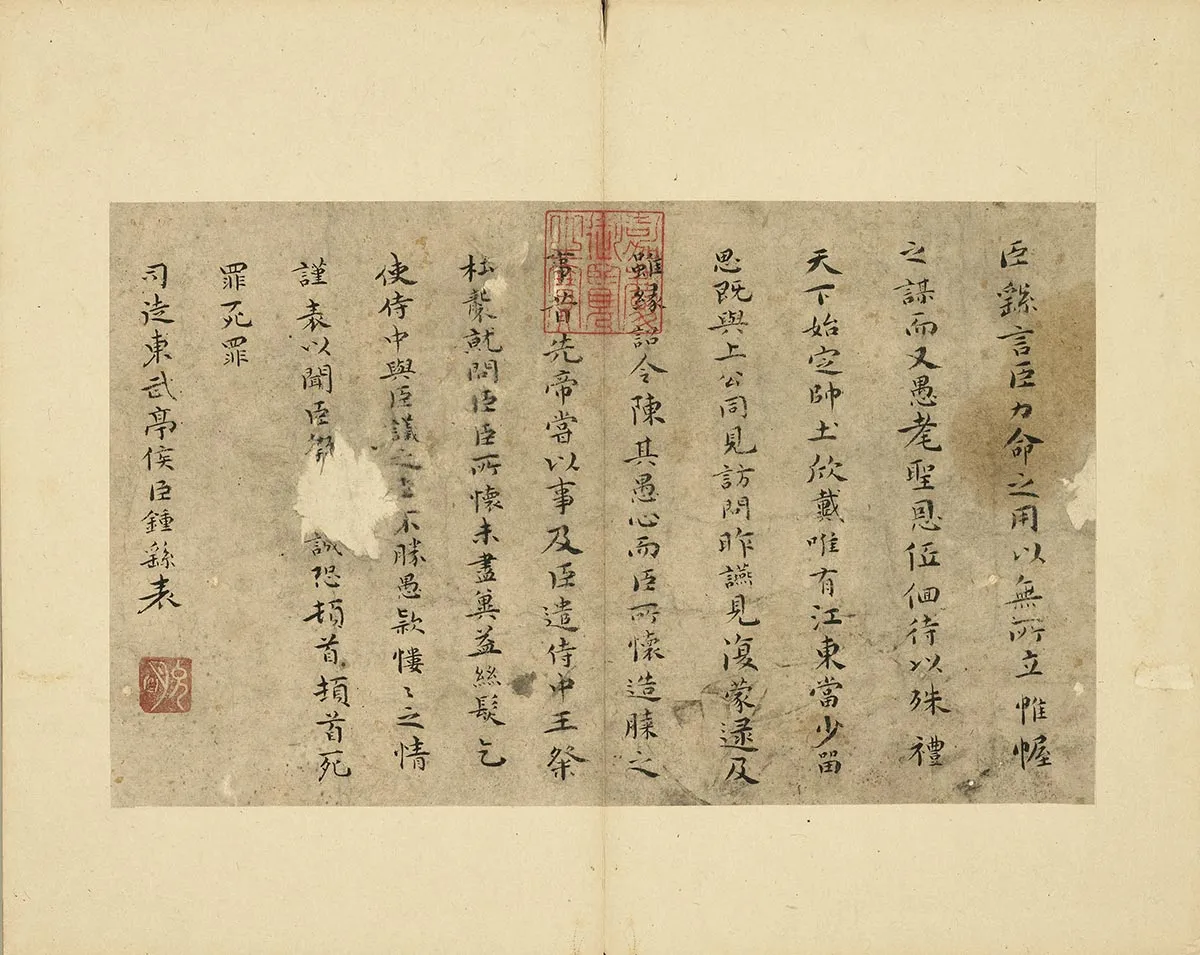 臣繇言臣力命之用以無所立帷幄
之謀而又愚耄聖恩伍佪待以殊禮
天下始定帥土欣戴唯有江東當少留
思既與上公同見訪問昨讌見復蒙逮及
雖緣詔令陳其愚心而臣所懷造膝之
事昔先帝嘗以事及臣遣侍中王粲
杜襲就問臣臣所懷未盡奠益絲髮乞
使侍中與臣議之臣不勝愚款慺〻之情
謹表以聞臣繇 誠恐頓首頓首死
罪死罪
司徒東武亭侯臣鍾繇表